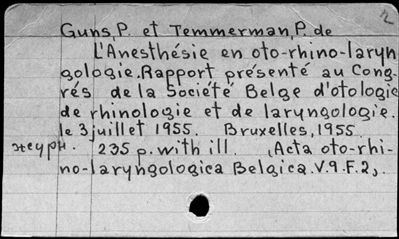 2
Guns, P. et Temmerman, P. de
L'Anesthésie en oto-rhino-laryn
gologie. Rapport présenté au Cong-
rés de la Société Belge d'otologie
de rhinologie et de laryngologie.
le 3 juillet 1955. Bruxelles, 1955.
журн. 235 p. with ill. (Acta oto-rhi-
no-laryngologica Belgica. V.9. F.2).